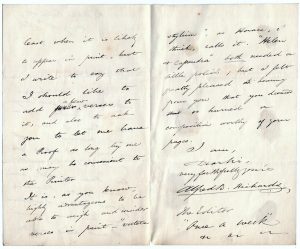 least when it is likely
to appear in print, but
I write to say that
I should like to
add few verses to
it, and also to ask
you to let me have
a Proof as long by me
as may be convenient to
the Printer
It is, as you know,
highly advantageous to be
able to weigh and consider
verses in print. "vertere
stylum" as Horace, I
think, calls it. Helen
& Cassandra both needed a
little polish, but I felt
greatly pleased at having
from you that you deemed
so hurried a
composition worthy of your
pages.
I am,
Thanks
very faithfully yours
Alfred B. Richards
The Editor
Once a Week